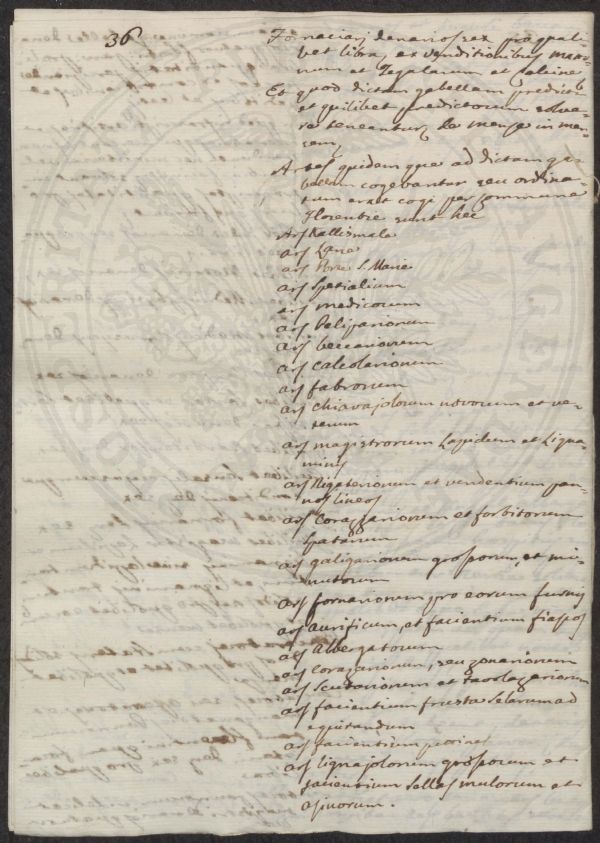 36
Fornaciarj denarios sex pro quali=
bet libra, ex venditionibus mato=
num et Tegularum et Calcine
Et quod dictam gabellam predicti
et quilibet predictorum solve=
re teneantur de mense in men=
sem,
Artes quidem que ad dictam ga=
bellam cogebantur seu ordina=
tum erat cogi per Commune
Florentie sunt hec
Ars Kallismale
ars Lane
ars Porte S. Marie
ars Spetialium
ars medicorum
ars Pelipariorum
ars beccariorum
ars calzolariorum
ars fabrorum
ars chiavajolorum novorum et ve=
terum
ars magistrorum Lapidum et Ligna=
minis
ars Rigateriorum et vendentium pan=
nos lineos
ars Corazzariorum et forbitorum
Spatarum
ars galigariorum grossorum, et mi=
nutorum
ars fornariorum pro eorum furnis
ars aurificum, et facientium fiascos
ars Albergatorum
ars corazariorum, seu zonariorum
ars Scudariorum et Tavolazariorum
ars facientium frusta Selarum ad
equitandum
ars facientium
ars Lignajolorum grossorum et
facientium Sellas mulorum et
asinorum.